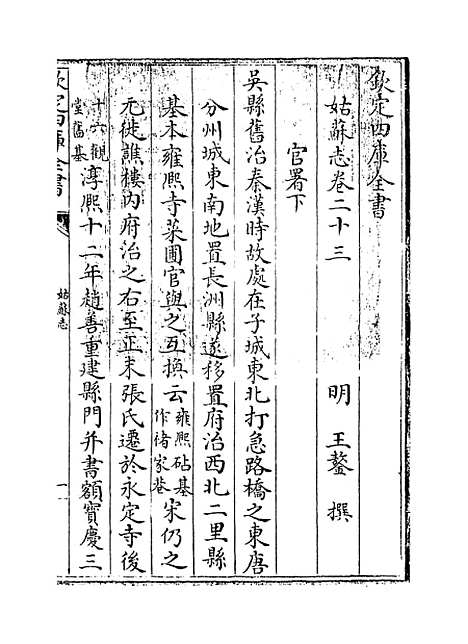 欽定四庫全書
姑蘇志卷二十三
明 王鏊 撰
官署下
吳縣舊治秦漢時故處在子城東北打急路橋之東唐
分州城東南地置長洲縣遂移置府治西北二里縣
基本雍熙寺菜圃官與之互換云雍熙砧基作禇家巷宋仍之
元徙譙樓内府治之右至正末張氏遷於永定寺後
十六觀堂舊基淳熙十二年趙善重建縣門并書額寳慶三
欽定四庫全書
姑蘇志
一